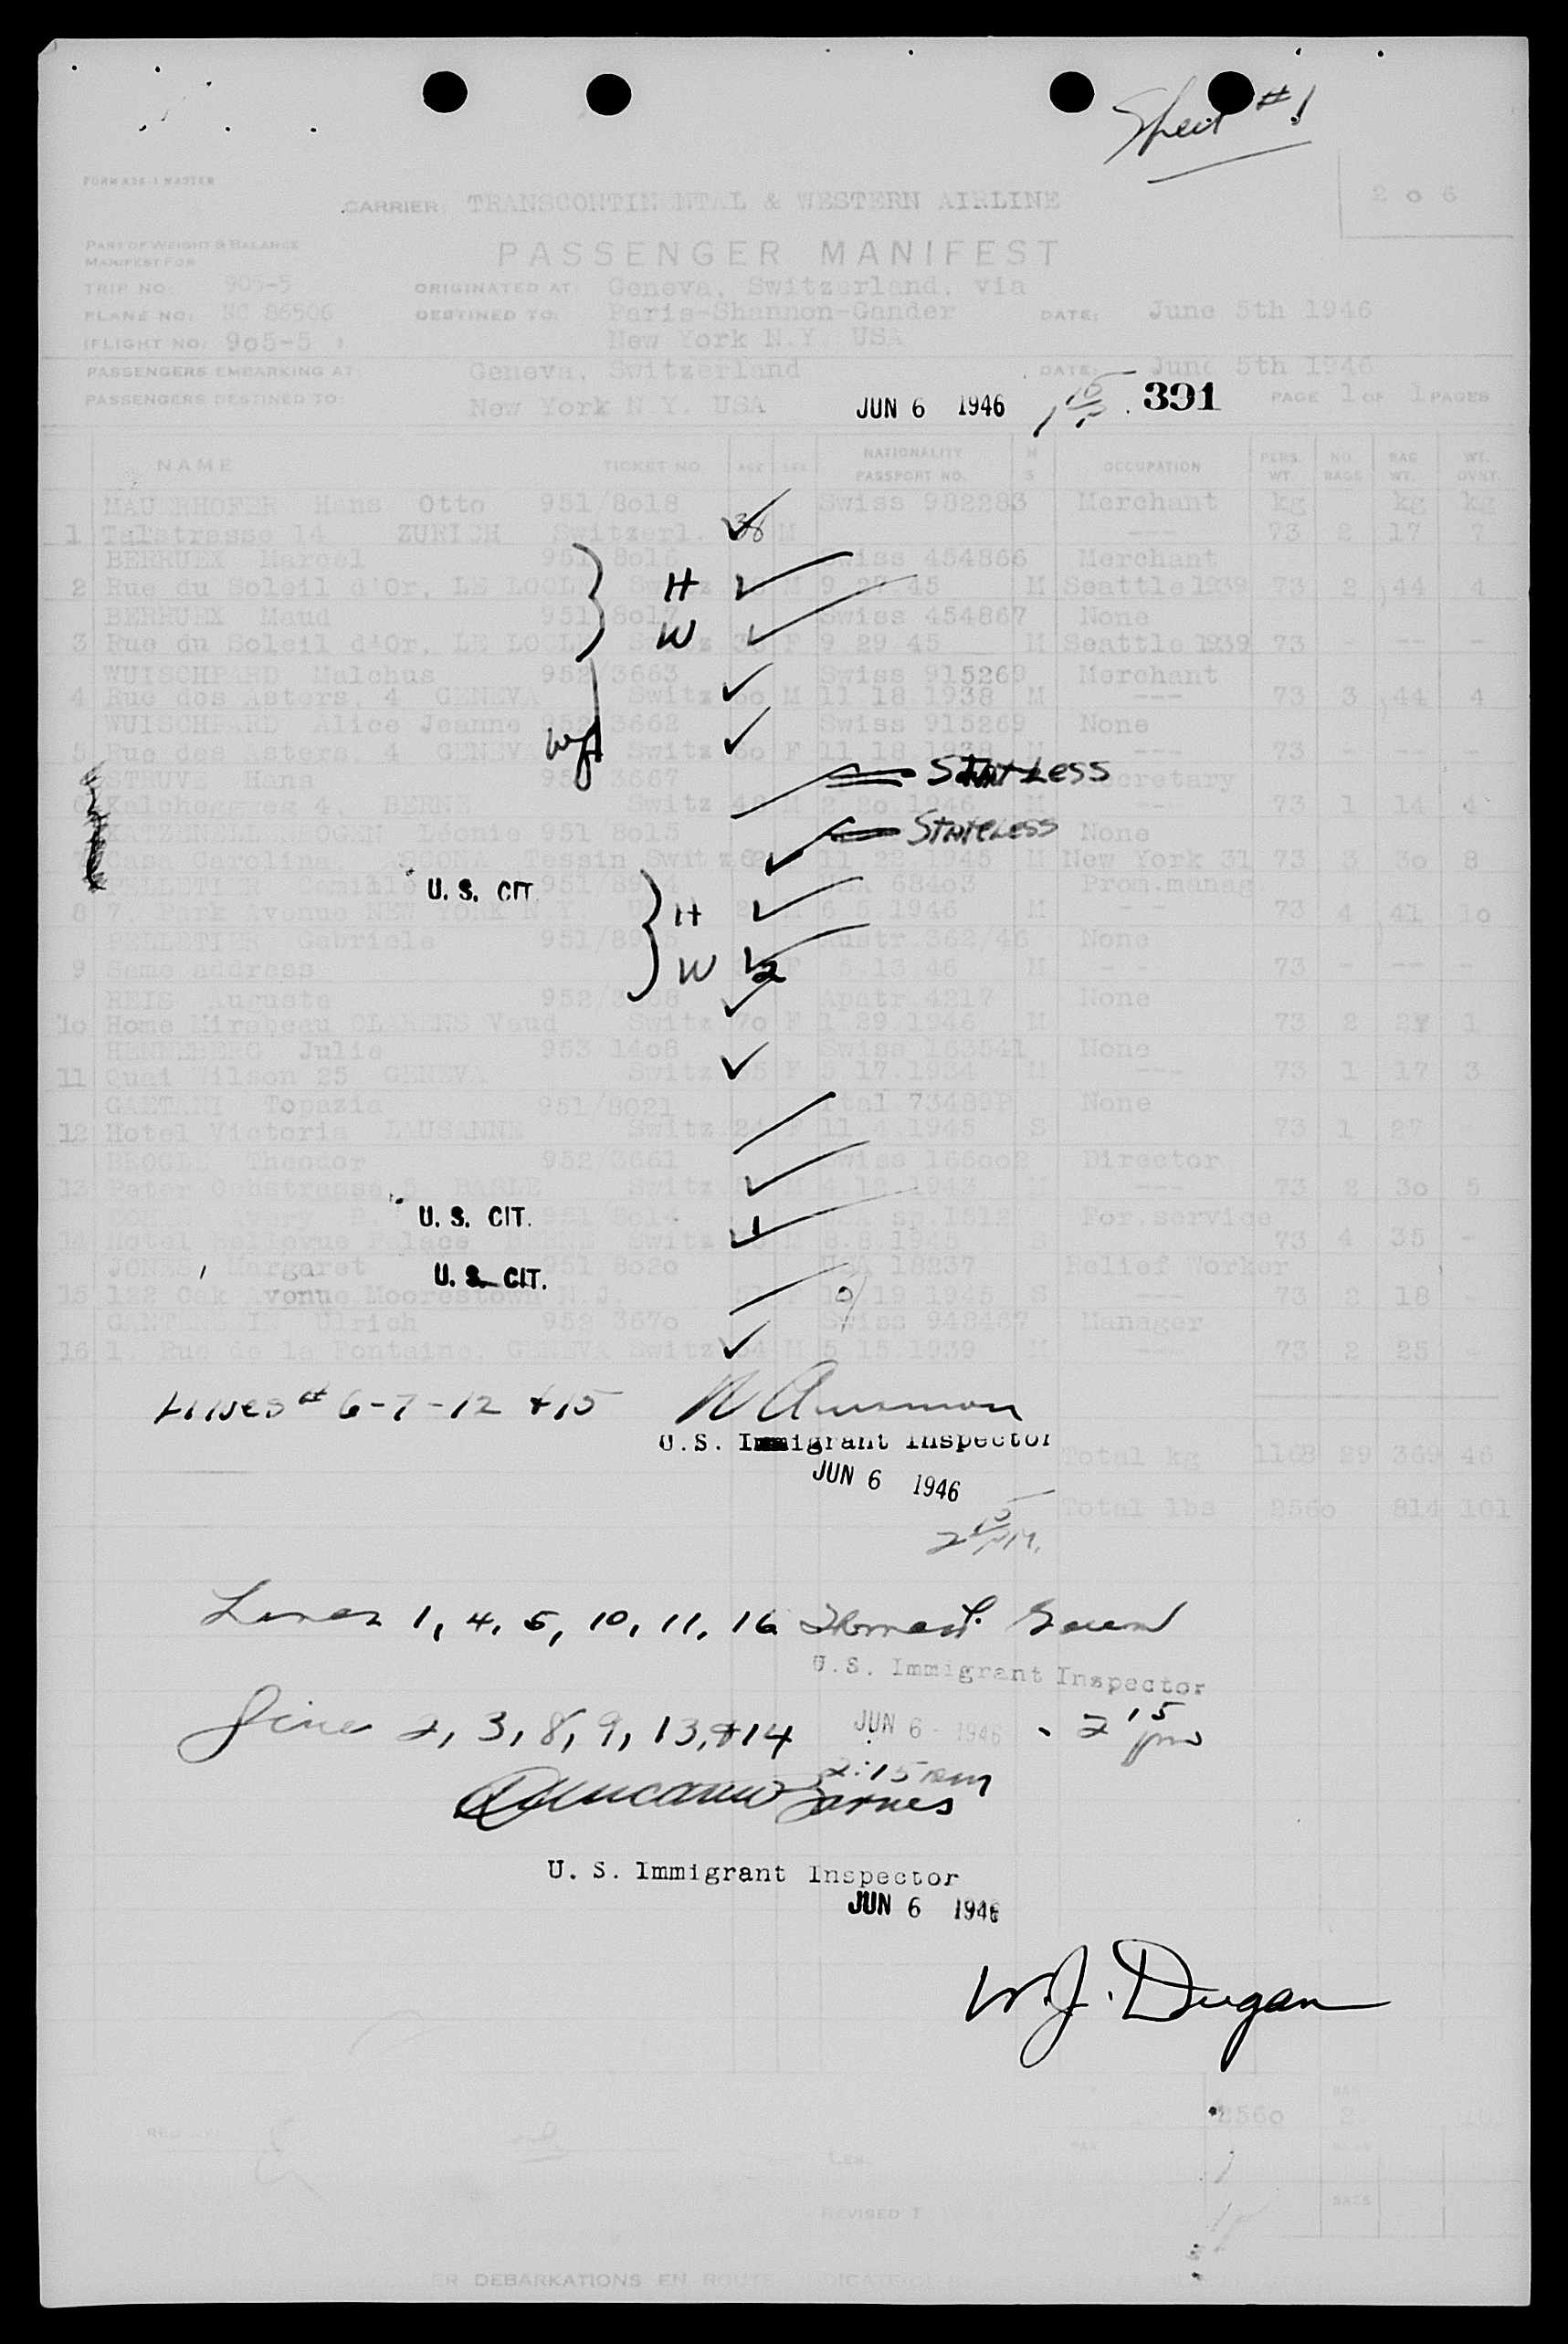 Sheet #1
FORM A36-1 MASTER
CARRIER: TRANSCONTINENTAL & WESTERN AIRLINE
2 o 6
PART OF WEIGHT & BALANCE
MANIFEST FOR
PASSENGER MANIFEST
TRIP NO: 905-5 ORIGINATED AT: Geneva, Switzerland, via
PLANE NO: NC 86506 DESTINED TO: Paris-Shannon-Gander DATE: June 5th 1946
(FLIGHT NO: 9o5-5 ) New York N.Y. USA
PASSENGERS EMBARKING AT: Geneva, Switzerland DATE: June 5th 1946
PASSENGERS DESTINED TO: New York N.Y. USA JUN 6 1946 391 PAGE 1 OF 1 PAGES
NAME TICKET NO. AGE SEX NATIONALITY PASSPORT NO. M S OCCUPATION PERS. WT. NO. BAGS BAG WT. WT. OVWT.
MAUERHOFER Hans Otto 951/8o18 Swiss 982283 Merchant kg kg kg
1 Talstrasse 14 ZURICH Switzerl. 36 M --- 73 2 17 7
BERRUEX Marcel 951 8o16 Swiss 454866 Merchant
2 Rue du Soleil d'Or, LE LOCLE H M 9 29.45 M Seattle 1939 73 2 44 4
BERRUEX Maud 951 8o17 Swiss 454867 None
3 Rue du Soleil d'Or, LE LOCLE W F 9 29 45 M Seattle 1939 73 - -- -
WUISCHPARD Malchus 952/3663 Swiss 915269 Merchant
4 Rue des Asters, 4 GENEVA Switz 60 M 11 18.1938 M --- 73 3 44 4
WUISCHPARD Alice Jeanne 952 3662 Swiss 915269 None
5 Rue des Asters, 4 GENEVA Switz 60 F 11 18 1938 M --- 73 - -- -
STRUVE Hans 952 3667 Stateless Secretary
6 4, BERNE Switz M 2.2o.1946 M --- 73 1 14 4
Léonie 951 8o15 Stateless None
7 Casa Carolina, ASCONA Tessin Switz 62 11 22 1945 M New York 31 73 3 3o 8
PELLETIER Camille U. S. CIT. USA 684o3 Prom.manag
8 7, Park Avenue NEW YORK N.Y. H M 6 5 1946 M -- 73 4 41 1o
PELLETIER Gabriele Austr 362/46 None
9 Same address W F 5.13 46 M 73 - --
REIS Auguste Apatr 4217 None
1o Home Mirabeau CLARENS Vaud Switz 7o F 1 29 1946 M 73 2 27 1
HENNEBERG Julie 953 14o8 Swiss 163541 None
11 Quai Wilson 25 GENEVA Switz F 5.17.1934 M --- 73 1 17 3
GAETANI Topazia 951/8021 Ital 73489P None
12 Hotel Victoria LAUSANNE Switz 24 F 11 4.1945 S 73 1 27
Theodor 952 3661 Swiss 166oo2 Director
13 Peter BASLE Switz M 4.12.1943 M --- 73 2 3o 5
U. S. CIT. 951/8o14 1812 For.service
Hotel Bellevue Palace BERNE Switz M 8.8 1945 S 73 4 35 -
JONES Margaret U. S. CIT. 951 8o2o USA 18237 Relief Worker
15 122 Oak Avenue Moorestown N.J. F 10/19 1945 S --- 73 2 18
Ulrich 952 367o Swiss 948467 Manager
16 1 Rue de la Fontaine, GENEVA Switz 54 M 5 15.1939 M --- 73 2 25 -
Lines # 6-7-12 + 15
U.S. Immigrant Inspector Total kg 1168 29 369 46
JUN 6 1946
2 15 PM. Total lbs 256o 814 101
Lines 1, 4, 5, 10, 11, 16
U.S. Immigrant Inspector
Line 2, 3, 8, 9, 13, + 14 JUN 6 - 1946 - 2 15 pm
2:15 pm
U. S. Immigrant Inspector
JUN 6 1946
W.J. Dugan
256o
REVISED
DEBARKATIONS EN ROUTE